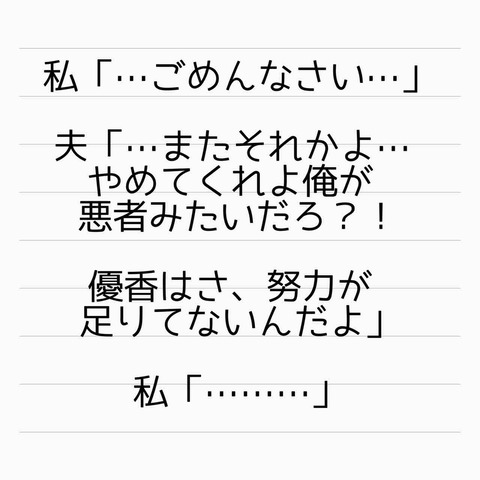 私「…ごめんなさい…」
夫「…またそれかよ…
やめてくれよ俺が
悪者みたいだろ？！
優香はさ、努力が
足りてないんだよ」
私「………」